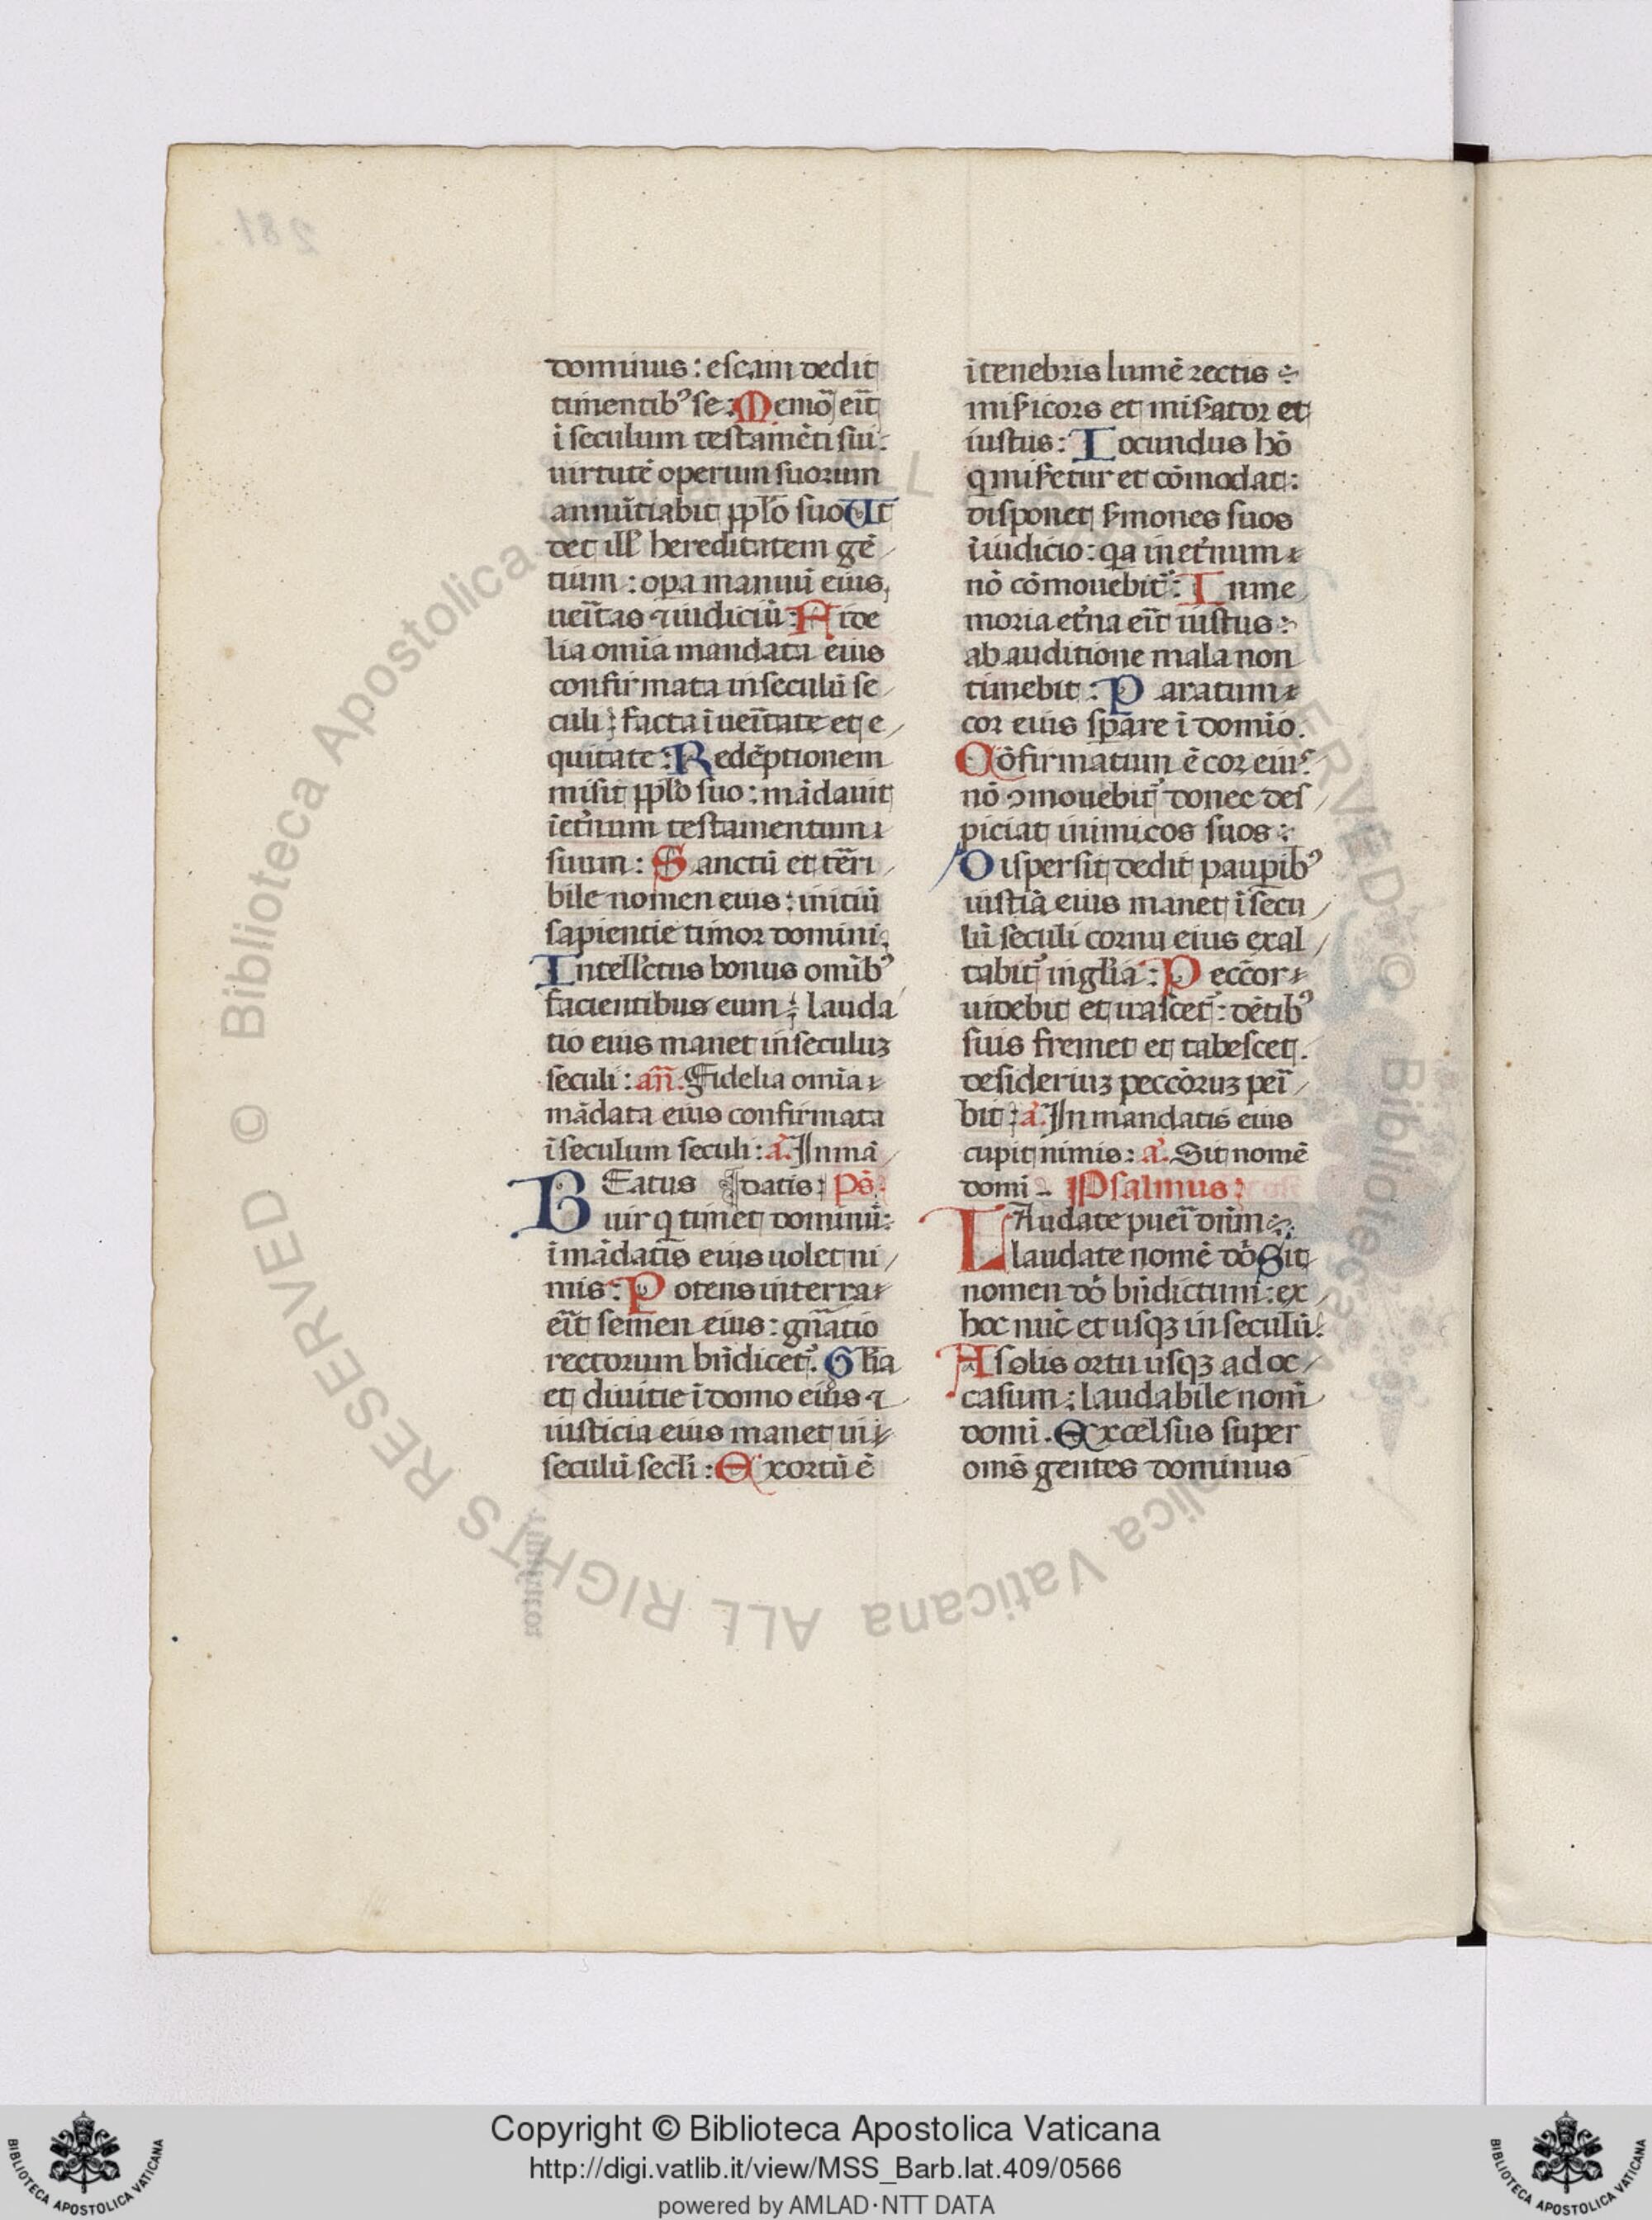 dominus : escam dedit
timentibꝰ se : Memõ eĩt
ĩ seculum testamẽti sui :
uirtutẽ operum suorum
annũtiabit pp̃lo suo Ut
det ill̃ hereditatem gẽ
tium : oꝑa manuũ eius
ueĩtas ⁊ iudiciũ : Fide
lia om̃ia mandata eius
confirmata in seculũ se
culi : facta ĩ ueĩtate et e
quitate : Redẽptionem
misit pp̃lo suo : mãdauit
ĩ et̃num testamentum
suum : Sanctũ et tẽri
bile nomen eius : initiũ
sapientie timor domini :
Intell̃ctus bonus om̃ibꝰ
facientibus eum : lauda
tio eius manet in seculuꝫ
seculi : añ. Fidelia om̃ia
mãdata eius confirmata
ĩ seculum seculi : a᷒. In mã
BEatus datis : Ps̃.
uir q̃ timet dominũ :
ĩ mãdatis eius uolet ni
mis : Potens in terra
eĩt semen eius : gñatio
rectorum bñdicet᷒. Glĩa
et diuitie ĩ domo eius ⁊
iusticia eius manet in
seculũ secl̃i : Exortũ ẽ
ĩ tenebris lumẽ rectis
mis̃icors et mis̃ator et
iustus : Iocundus hõ
q̃ mis̃etur et cõmodat :
disponet s̃mones suos
ĩ iudicio : q̃a in et̃num
nõ cõmouebit᷒ : In me
moria et̃na eĩt iustus :
ab auditione mala non
timebit : Paratum
cor eius sꝑare ĩ domĩo.
Cõfirmatum ẽ cor eiuꝰ
nõ ꝯmouebit᷒ donec des
piciat inimicos suos :
Dispersit dedit pauꝑibꝰ
iustiã eius manet ĩ secu
lũ seculi cornu eius exal
tabit᷒ in glĩa : Pecc̃or
uidebit et irascet᷒ : dẽtibꝰ
suis fremet et tabescet.
desideriuꝫ pecc̃oruꝫ peĩ
bit : a᷒. In mandatis eius
cupit nimis : a᷒. Sit nomẽ
domĩ. Psalmus :
LAudate pueĩ dñm :
laudate nomẽ dõ Sit
nomen dõ bñdictum : ex
hoc nũc et usqꝫ in seculũ :
A solis ortu usqꝫ ad oc
casum : laudabile nom̃
domĩ. Excelsus super
om̃s gentes dominus
Copyright © Biblioteca Apostolica Vaticana
http://digi.vatlib.it/view/MSS_Barb.lat.409/0566
powered by AMLAD·NTT DATA
BIBLIOTECA APOSTOLICA VATICANA
BIBLIOTECA APOSTOLICA VATICANA
© Biblioteca Apostolica Vaticana ALL RIGHTS RESERVED
© Biblioteca Apostolica Vaticana ALL RIGHTS RESERVED
281